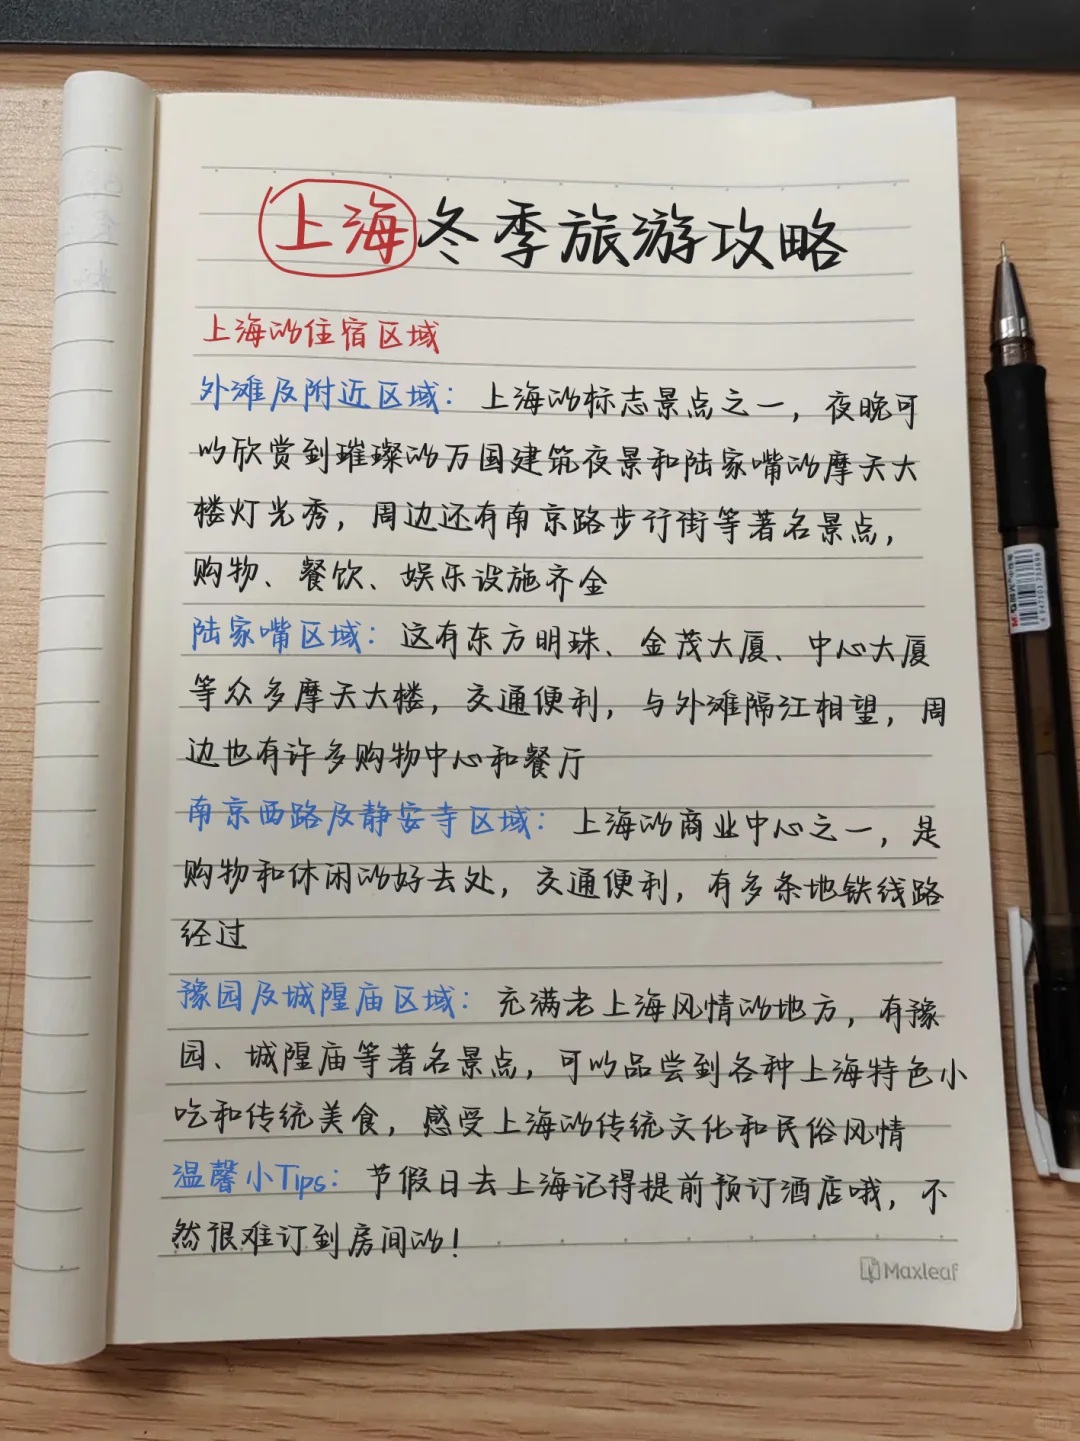 上海冬季旅游攻略
上海的住宿区域
外滩及附近区域：上海的标志景点之一，夜晚可
以欣赏到璀璨的万国建筑夜景和陆家嘴的摩天大
楼灯光秀，周边还有南京路步行街等著名景点，
购物、餐饮、娱乐设施齐全
陆家嘴区域：这有东方明珠、金茂大厦、中心大厦
等众多摩天大楼，交通便利，与外滩隔江相望，周
边也有许多购物中心和餐厅
南京西路及静安寺区域：上海的商业中心之一，是
购物和休闲的好去处，交通便利，有多条地铁线路
经过
豫园及城隍庙区域：充满老上海风情的地方，有豫
园、城隍庙等著名景点，可以品尝到各种上海特色小
吃和传统美食，感受上海的传统文化和民俗风情
温馨小Tips：节假日去上海记得提前预订酒店哦，不
然很难订到房间的！
Maxleaf